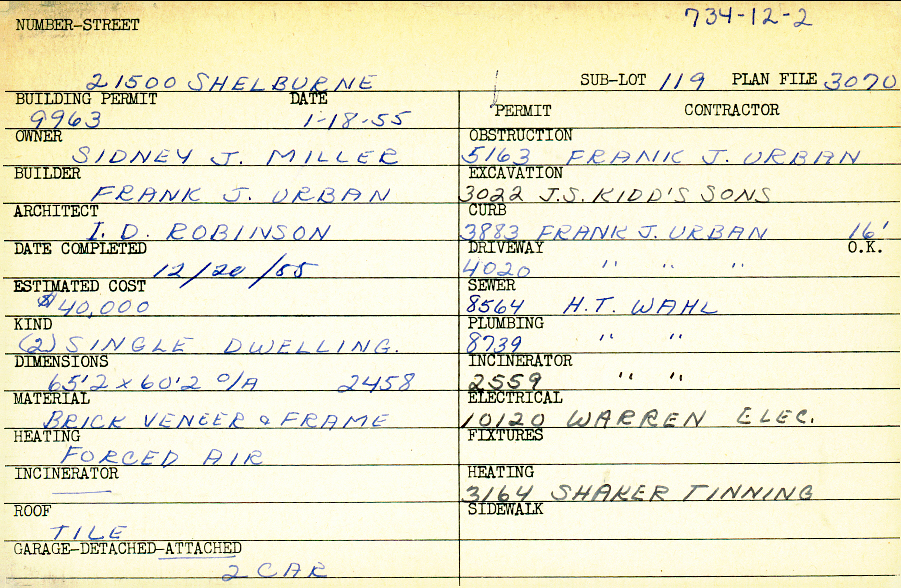 734-12-2
NUMBER-STREET
21500 SHELBURNE SUB-LOT 119 PLAN FILE 3070
BUILDING PERMIT DATE
9963 1-18-55
OWNER
SIDNEY J. MILLER
BUILDER
FRANK J. URBAN
ARCHITECT
I. D. ROBINSON
DATE COMPLETED
12/20/55
ESTIMATED COST
$40,000
KIND
(2) SINGLE DWELLING.
DIMENSIONS
65'2 x 60'2 O/A 2458
MATERIAL
BRICK VENEER & FRAME
HEATING
FORCED AIR
INCINERATOR
ROOF
TILE
GARAGE-DETACHED-ATTACHED
2 CAR
PERMIT CONTRACTOR
OBSTRUCTION
5163 FRANK J. URBAN
EXCAVATION
3022 J.S. KIDD'S SONS
CURB
3883 FRANK J. URBAN 16'
DRIVEWAY O.K.
4020 " " "
SEWER
8564 H.T. WAHL
PLUMBING
8739 " "
INCINERATOR
2559 " "
ELECTRICAL
10120 WARREN ELEC.
FIXTURES
HEATING
3164 SHAKER TINNING
SIDEWALK